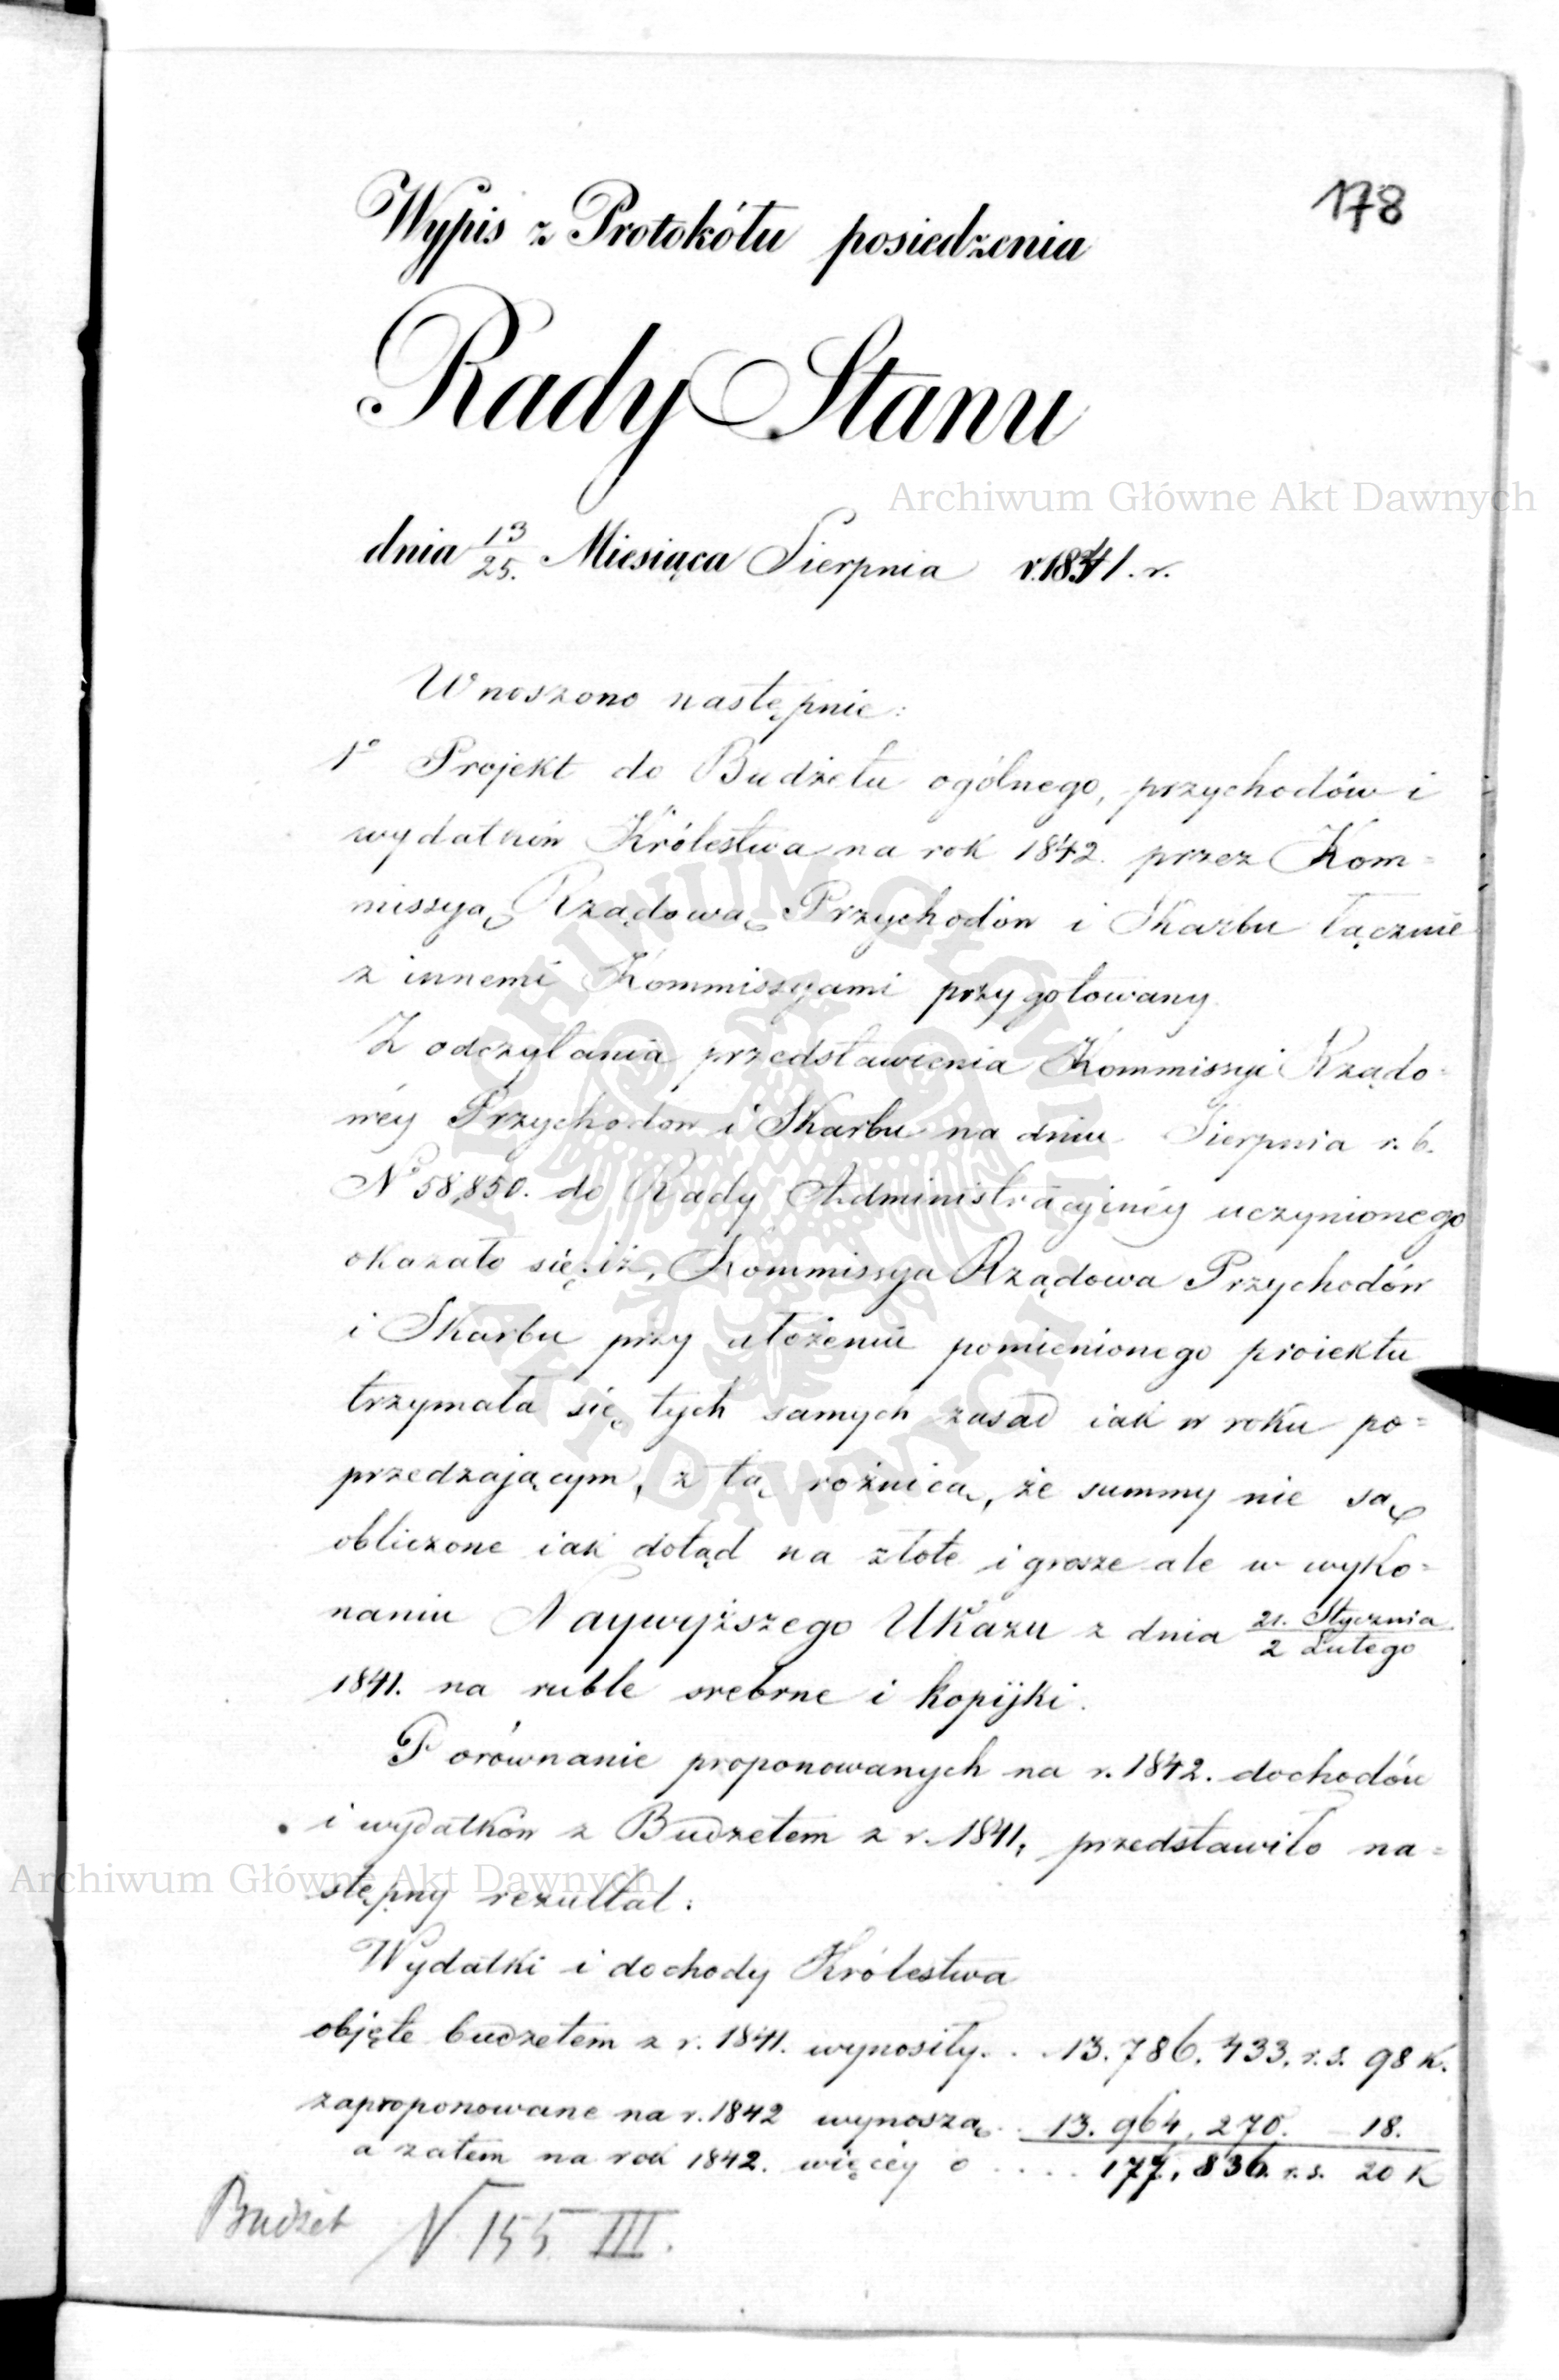 178
Wypis z Protokółu posiedzenia
Rady Stanu
Archiwum Główne Akt Dawnych
dnia 13/25. Miesiąca Sierpnia r. 1841. r.
Wnoszono następnie:
1° Projekt do Budżetu ogólnego, przychodów i
wydatków Królestwa na rok 1842. przez Kom=
missyą Rządową Przychodów i Skarbu łącznie
z innemi Kommissyami przygotowany.
Z odczytania przedstawienia Kommissyi Rządo=
wéy Przychodów i Skarbu na dniu Sierpnia r. b.
N° 58,850. do Rady Administracyinéy uczynionego
okazało się, iż, Kommissya Rządowa Przychodów
i Skarbu przy ułożeniu pomienionego proiektu
trzymała się tych samych zasad iak w roku po=
przedzającym, z tą rożnicą, że summy nie są
obliczone iak dotąd na złote i grosze ale w wyko=
naniu Naywyższego Ukazu z dnia 21. Stycznia / 2 Lutego
1841. na ruble srebrne i kopijki.
Porównanie proponowanych na r. 1842. dochodów
i wydatków z Budżetem z r. 1841, przedstawiło na=
Archiwum Główne Akt Dawnych
stępny rezultat:
Wydatki i dochody Królestwa
objęte budżetem z r. 1841. wynosiły. . . 13.786.433. r. s. 98 k.
zaproponowane na r. 1842 wynoszą. . 13. 964, 270. — 18.
a zatem na rok 1842. więcéy o . . . . 177, 836. r. s. 20 k
Budżet N 155 III.
ARCHIWUM GŁÓWNE AKT DAWNYCH